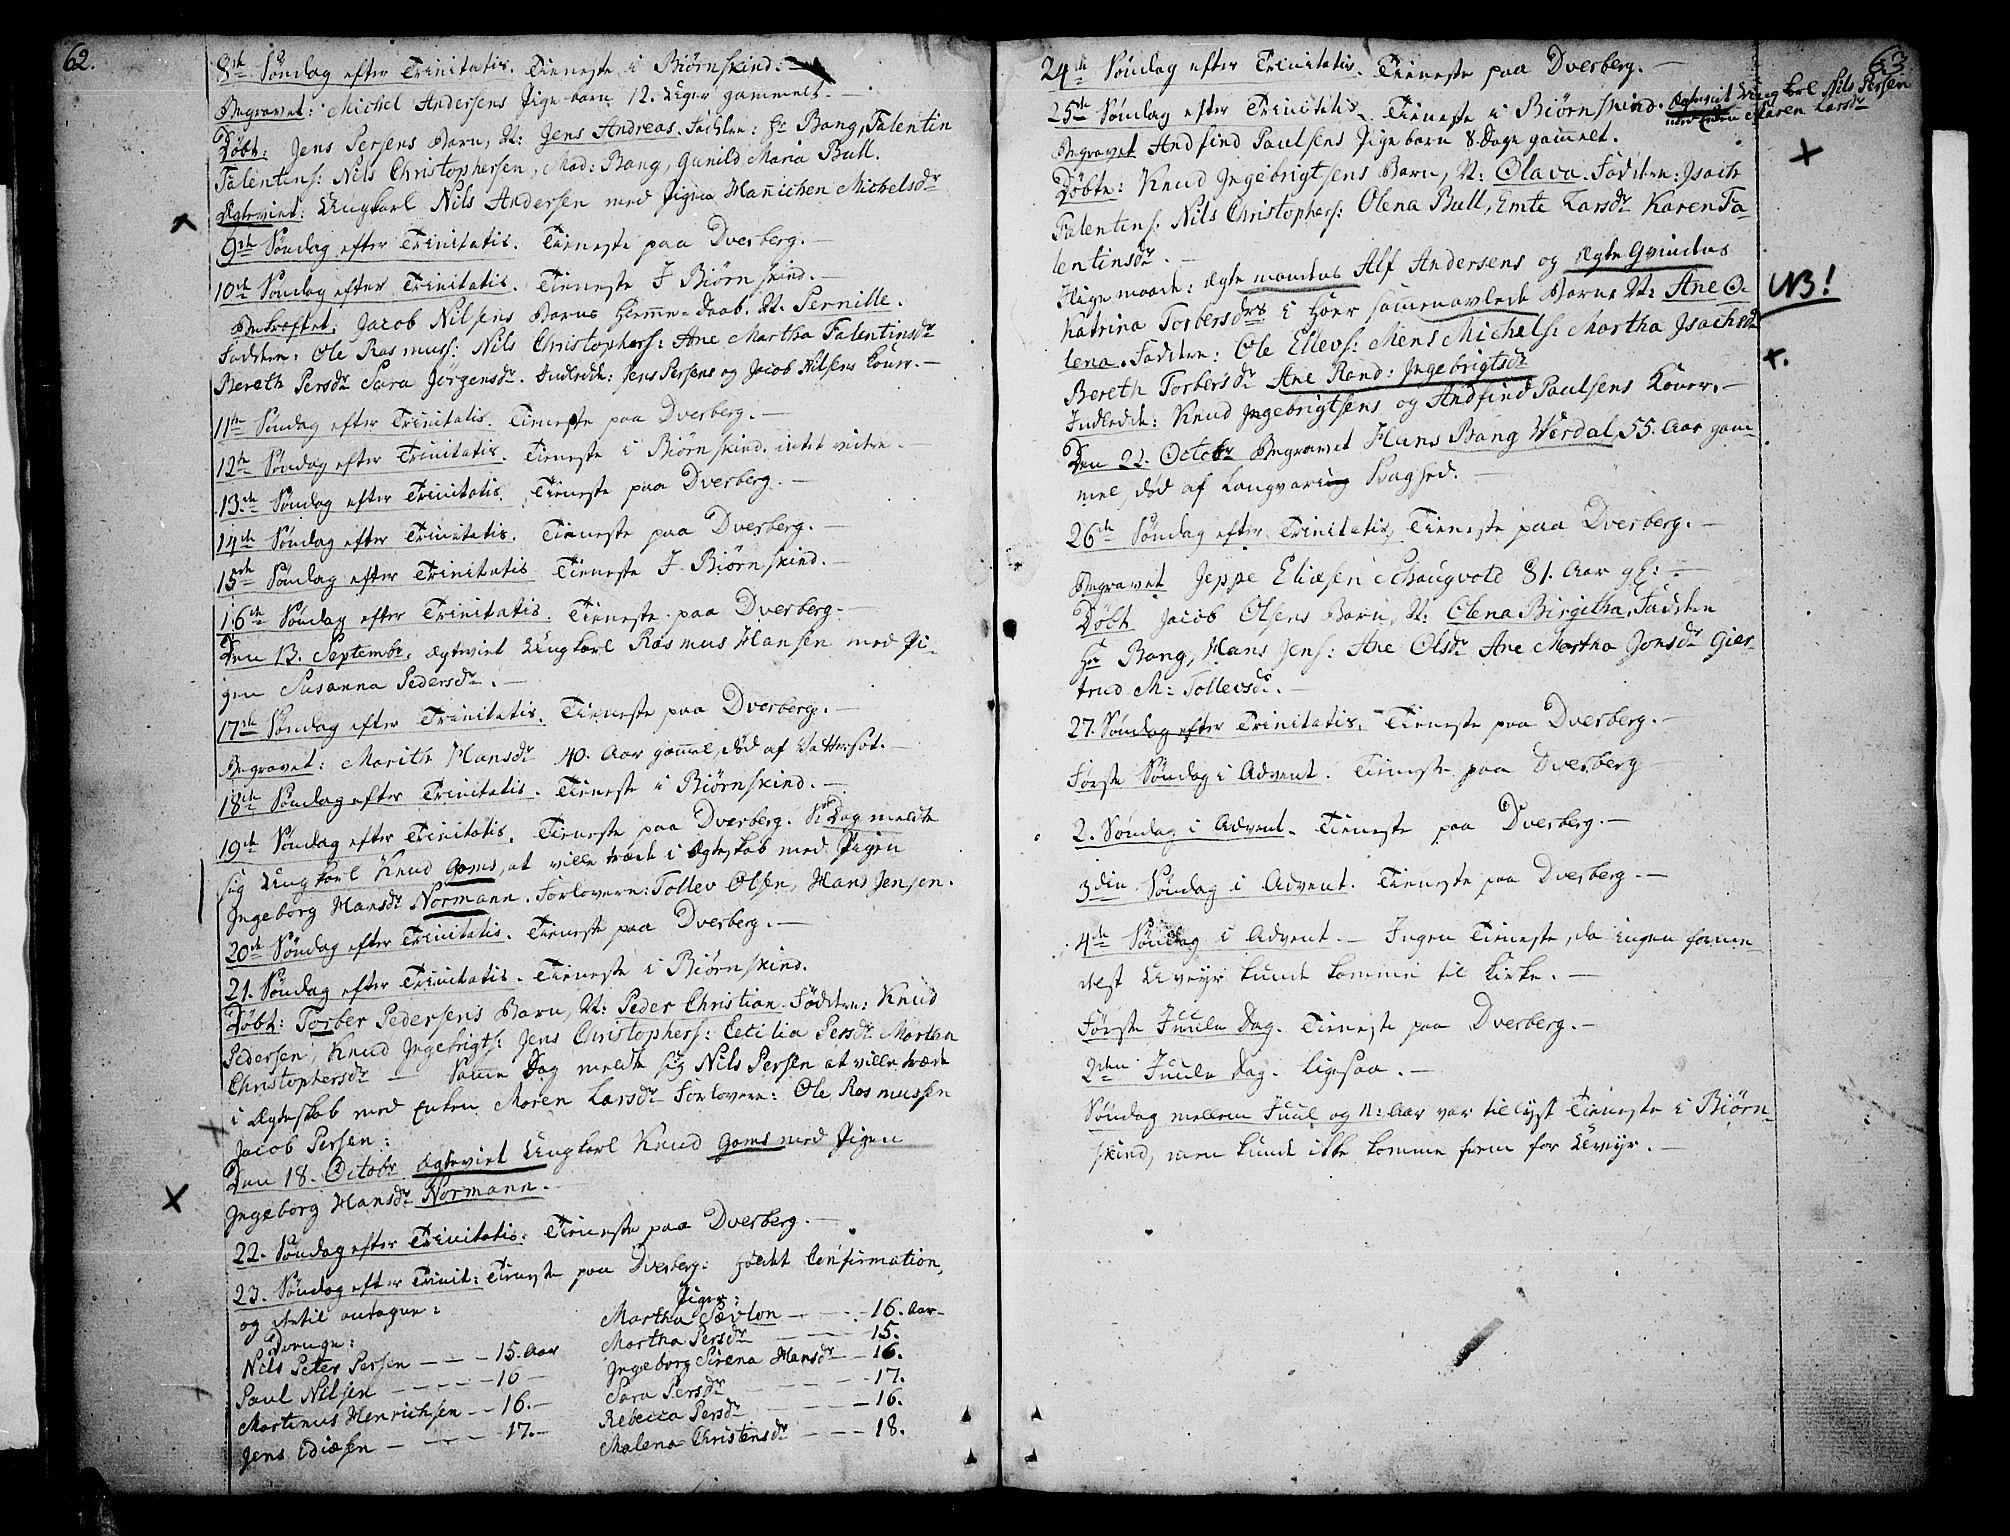 62.
8de Søndag efter Trinitatis. Tieneste i Biørnskind. —
Begravet: Michel Andersens Pige barn 12. Uger gammelt. —
Døbt: Jens Persens Barn, N: Jens Andreas. Faddere: Hr Bang, Falentin
Falentins: Nils Christophersen, Mad: Bang, Gunild Maria Bull.
Ægteviet: Ungkarl Nils Andersen med Pigen Hanichen Michelsdr
9de Søndag efter Trinitatis. Tieneste paa Dverberg. —
10de Søndag efter Trinitatis. Tieneste I Biørnskind. —
Bekræftet: Jacob Nilsens Barns Hiemme-Daab. N: Pernille.
Faddere: Ole Rasmuss: Nils Christophers: Ane Martha Falentinsdr
Bereth Persdr Sara Jörgensdr. Indledde: Jens Persens og Jacob Nilsens Koner. —
11te Søndag efter Trinitatis. Tieneste paa Dverberg. —
12te Søndag efter Trinitatis. Tieneste i Biørnskind. intet videre. —
13de Søndag efter Trinitatis. Tieneste paa Dverberg. —
14de Søndag efter Trinitatis. Tieneste paa Dverberg. —
15de Søndag efter Trinitatis. Tieneste I Biørnskind. —
16de Søndag efter Trinitatis. Tieneste paa Dverberg. —
Den 13. Septembr. ægteviet Ungkarl Rasmus Hansen med Pi-
gen Susanna Pedersdr. —
17de Søndag efter Trinitatis. Tieneste paa Dverberg. —
Begravet: Marith Hansdr 40. Aar gamel, død af Vattersot. —
18de Søndag efter Trinitatis. Tieneste i Biørnskind. —
19de Søndag efter Trinitatis. Tieneste paa Dverberg. S: Dag meldte
sig Ungkarl Knud Goms, at ville træde i Ægteskab med Pigen
Ingeborg Hansdr Normann. Forlovere: Tollev Olsen, Hans Jensen.
20de Søndag efter Trinitatis. Tieneste paa Dverberg. —
21. Søndag efter Trinitatis. Tieneste i Biørnskind.
Døbt: Torber Pedersens Barn, N: Peder Christian. Faddere: Knud
Pedersen, Knud Ingebrigts: Jens Christophers: Cecilia Persdr Marthe
Christophersdr — Same Dag meldte sig Nils Persen at ville træde
i Ægteskab med Enken Maren Larsdr Forlovere: Ole Rasmussen
Jacob Persen:
Den 18. Octobr Ægteviet Ungkarl Knud Goms med Pigen
Ingeborg Hansdr Normann. —
22. Søndag efter Trinitatis: Tieneste paa Dverberg. —
23. Søndag efter Trinit: Tieneste paa Dverberg: holdt Confirmation,
og dertil antagne:
Drenge:
Nils Peter Persen — — — 15. Aar
Paul Nilsen — — — — 16 —
Martinus Henrichsen — — 16. —
Jens Ediæsen — — — — 17. —
Piger:
Martha Sævlon — — — 16. Aar —
Martha Persdr — — — 15.
Ingeborg Sirena Hansdr — 16.
Sara Persdr — — — — 17.
Rebecca Persdr — — — — 16.
Malena Christensdr — — — 18.
63
24de Søndag efter Trinitatis. Tieneste paa Dverberg. —
25de Søndag efter Trinitatis. Tieneste i Biørnskind. Ægteviet Ungkarl Nils Persen
med Enken Maren Larsdr
Begravet Andfind Paulsens Pigebarn 8. Dage gamelt.
Døbte: Knud Ingebrigtsens Barn, N: Olava. Faddere: Isach
Falentins: Nils Christophers: Olena Bull, Emte Larsdr Karen Fa-
lentinsdr. —
Lige maade: ægte mandens Alf Andersens og Ægte Qvindens
Katrina Torbersdrs i Hoer samenavlede Barn, N: Ane O-
lena. Faddere: Ole Ellevs: Mens Michels: Martha Isachsdr
NB!
Bereth Torbersdr Ane Rand: Ingebrigtsdr
Indledde: Knud Ingebrigtsens og Andfind Paulsens Koner. —
Den 22. Octobr Begravet Hans Bang Werdal, 55. Aar gam-
mel, død af Langvarig Svaghed. —
26de Søndag efter Trinitatis, Tieneste paa Dverberg. —
Begravet Jeppe Eliæsen Schaugvold 81. Aar gl: —
Døbt Jacob Olsens Barn, N: Olena Birgitha. Faddere
Hr Bang, Hans Jens: Ane Olsdr Ane Martha Jonsdr Gier-
trud M: Tollevsdr. —
27. Søndag efter Trinitatis. Tieneste paa Dverberg. —
Første Søndag i Advent. Tieneste paa Dverberg
2. Søndag i Advent. Tieneste paa Dverberg. —
3die Søndag i Advent. Tieneste paa Dverberg. —
4de Søndag i Advent. — Ingen Tieneste, da ingen forme-
delst Uveyr kunde komme til Kirke. —
Første Juule Dag. Tieneste paa Dverberg. —
2den Juule Dag. Ligesaa. —
Søndag mellem Juul og N: Aar var tillyst Tieneste i Biørn-
skind, men kunde ikke komme frem for Uveyr. —